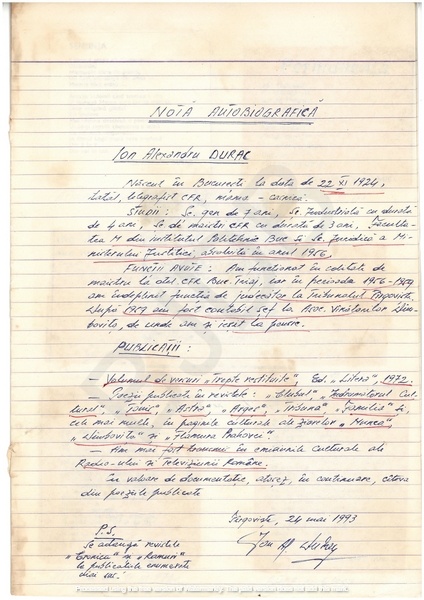 NOTĂ AUTOBIOGRAFICĂ
Ion Alexandru DURAC
Născut în București la data de 22 XI 1924,
tatăl, telegrafist CFR, mama - casnică.
STUDII: Șc. gen de 7 ani, Șc. Industrială cu durată
de 4 ani, Șc. de maiștri CFR cu durată de 3 ani, Faculta-
tea M din institutul Politehnic Buc și Șc. Juridică a Mi-
nisterului Justiției, absolvită în anul 1956,
FUNCȚII AVUTE: Am funcționat în calitate de
maistru la atel. CFR Buc Triaj, iar în perioada 1956-1959
am îndeplinit funcția de judecător la Tribunalul Tîrgoviște
După 1959 am fost contabil șef la Asoc. Vînătorilor Dîm-
bovița, de unde am și ieșit la pensie.
PUBLICAȚII:
- Volumul de versuri „Trepte restituite", Ed. „Litera", 1972.
- Poezii publicate în revistele: „Clubul", „Îndrumătorul Cul-
tural", „Tomis", „Astra", „Argeș", „Tribuna", „Familia" și,
cele mai multe, în paginile culturale ale ziarelor „Munca"
„Dîmbovița" și „Flamura Prahovei"
- Am mai fost transmis în emisiunile culturale ale
Radio-ului și Televiziunii Române.
În valoare de documentație, atașez, în continuare, câteva
din poeziile publicate
Tîrgoviște, 24 mai 1993
P.S.
Se adaugă revistele
„Cronica" și „Ramuri"
la publicațiile enumerate
mai sus.